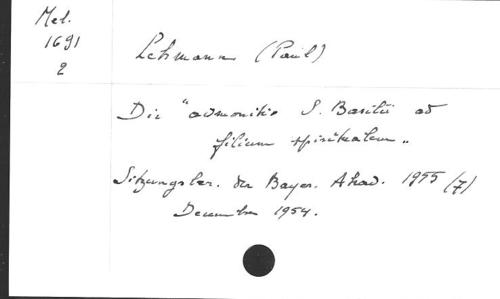 Mel.
1691
2
Lehmann (Paul)
Die "admonitio S. Basilii ad
filium spiritalem"
Sitzungsber. der Bayer. Akad. 1955 (7)
December 1954.